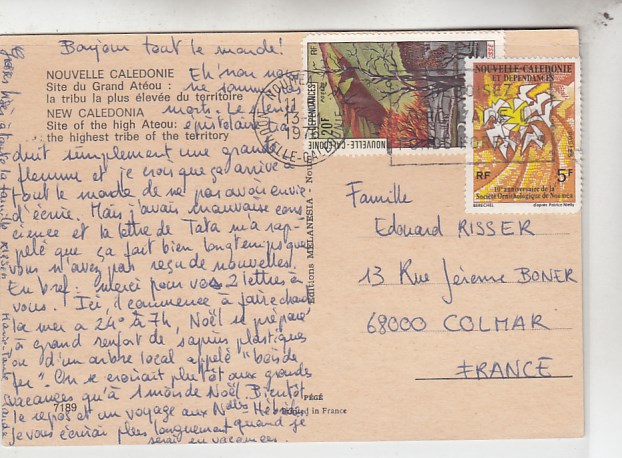 Bonjour tout le monde!
NOUVELLE CALEDONIE
Site du Grand Atéou :
la tribu la plus élevée du territoire
NEW CALEDONIA
Site of the high Ateou:
the highest tribe of the territory
Eh! non nous
ne sommes pas
morts. Le silence
épistolaire tra
duit simplement une grande
flemme et je crois que ça arrive à
tout le monde de ne pas avoir envie
d'écrire. Mais j'avais mauvaise cons
cience et la lettre de Tata m'a rap-
pelé que ça fait bien longtemps que
vous n'avez pas reçu de nouvelles.
En bref: merci pour vos 2 lettres à
vous. Ici, il commence à faire chaud
la mer a 24° à 7h, Noël se prépare
à grand renfort de sapins plastiques
ou d'un arbre local appelé "bois de
fer". On se croirait plutôt aux grandes
vacances qu'à 1 mois de Noël. Bientôt
le repos et un voyage aux Nelles Hébrides
Je vous écrirai plus longuement quand je
serai en vacances.
7189
à toute la famille
Marie-Paule
Editions MELANESIA
PÉGÉ
Printed in France
NOUVELLE-CALEDONIE
ET DEPENDANCES
20F
RF
NOUVELLE-CALEDONIE
ET DEPENDANCES
RF
5F
10e anniversaire de la
Société Ornithologique de Nouméa
Famille
Edouard RISSER
13 Rue Jérome BONER
68000 COLMAR
FRANCE